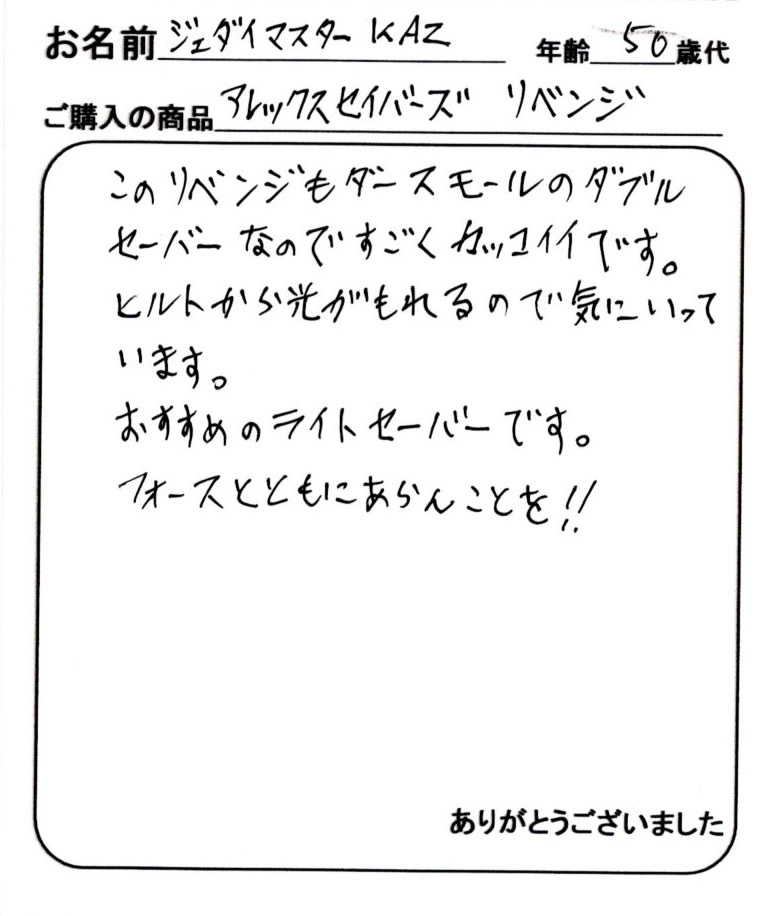 お名前 ジェダイマスター KAZ 年齢 50 歳代
ご購入の商品 アレックスセイバーズ リベンジ
このリベンジもダースモールのダブル
セーバーなのですごくカッコイイです。
ヒルトから光がもれるので気にいって
います。
おすすめのライトセーバーです。
フォースとともにあらんことを!!
ありがとうございました